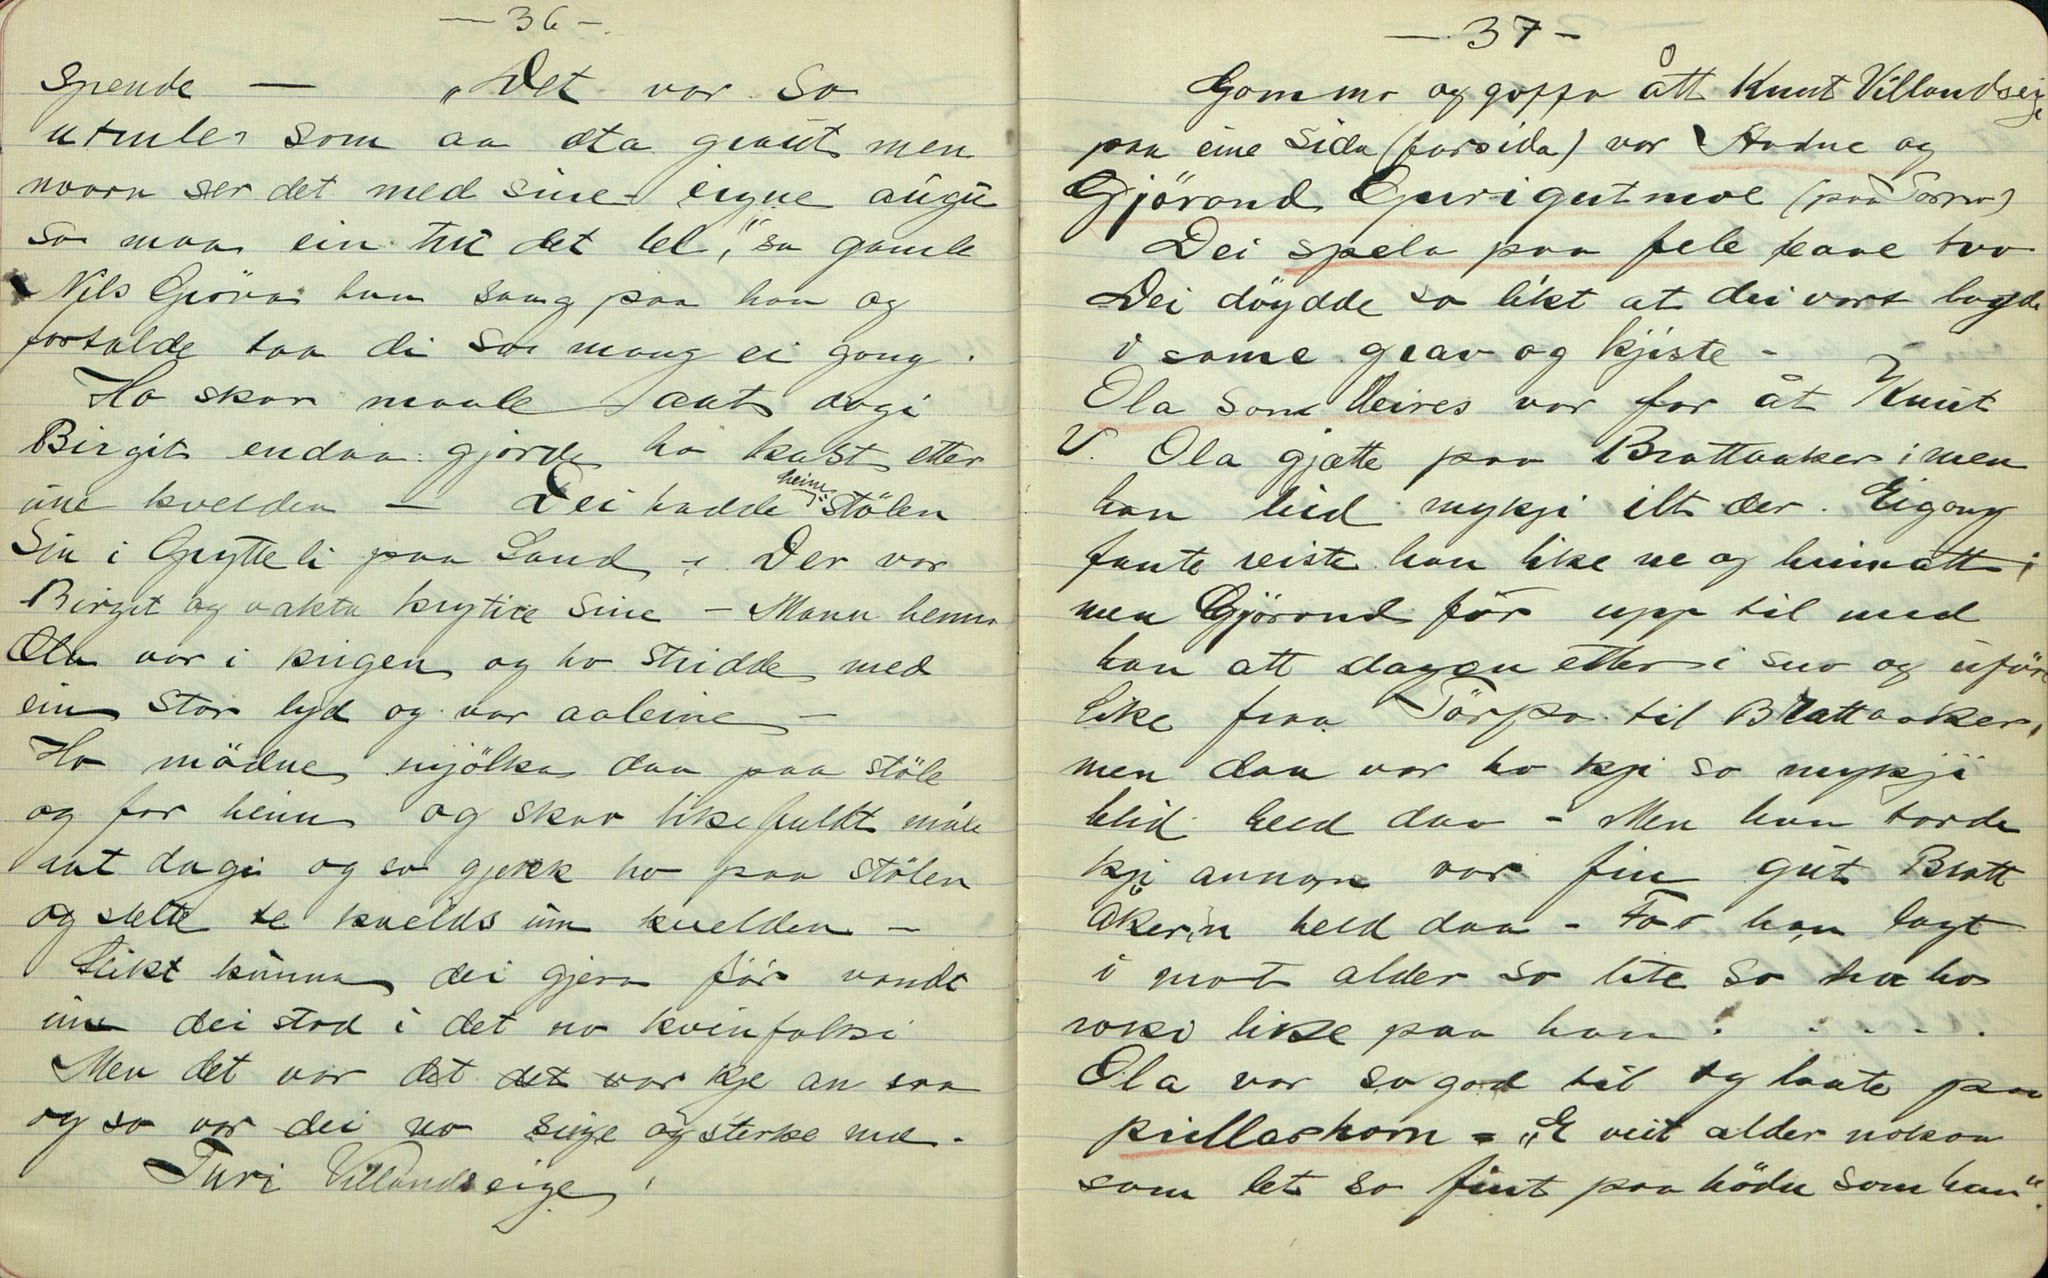 — 36 —
spende — „Det var so
urimele som aa æta graut men
naarn ser det med sine eigne augu
so maa ein tru det lel," sa gamle
Nils Gröva han sang paa han og
fortalde taa di so mang ei gong.
Ho skar maale aat dagi
Birgit endaa gjorde ho kast etter
une kvelden — Dei hadde heim: stölen
Sin i Grytteli paa Sand — Der var
Birgit og vakta krytire sine — Mann henna
Ola var i krigen og ho stridde med
ein stor lyd og var aaleine —
Ho mådne mjölka daa paa ståle
og for heim og skar likefullt måle
aat dagi og so gjekk ho paa stölen
og stelte te kvelds um kvelden —
Slikt kunna dei gjera för vandt
une dei stod i det no kvinfolki
Men det var det det var kje an raa
og so var dei no seige og sterke mæ.
Turi Villandseige
— 37 —
Gommo og goffa ått Knut Villandseige
paa eine sida (farsida) var Aadne og
Gjörond Gurigutmoe (paa Torpo)
Dei spela paa fele beae two
Dei döydde so likt at dei vart lagde
i same grav og kjiste —
Ola som Veires var far åt Knut
V. Ola gjætte paa Brattaaker i men
han leid mykji ilt der. Eigong
fante reiste han like ne og heimatt i
men Gjörond för upp til med
han att dagen etter i snø og uföre
like fraa Törpo til Brattaaker,
men daa var ho kji so mykji
blid held daa — Men han torde
kji annan var fin gut Bratt
åkerin held daa — For han togt
i mot alder so lite so ha ho
roki like paa han . . . . .
Ola var so god til og laate paa
prillarhorn — „E veit alder nokon
som let so fint paa hödn som han".